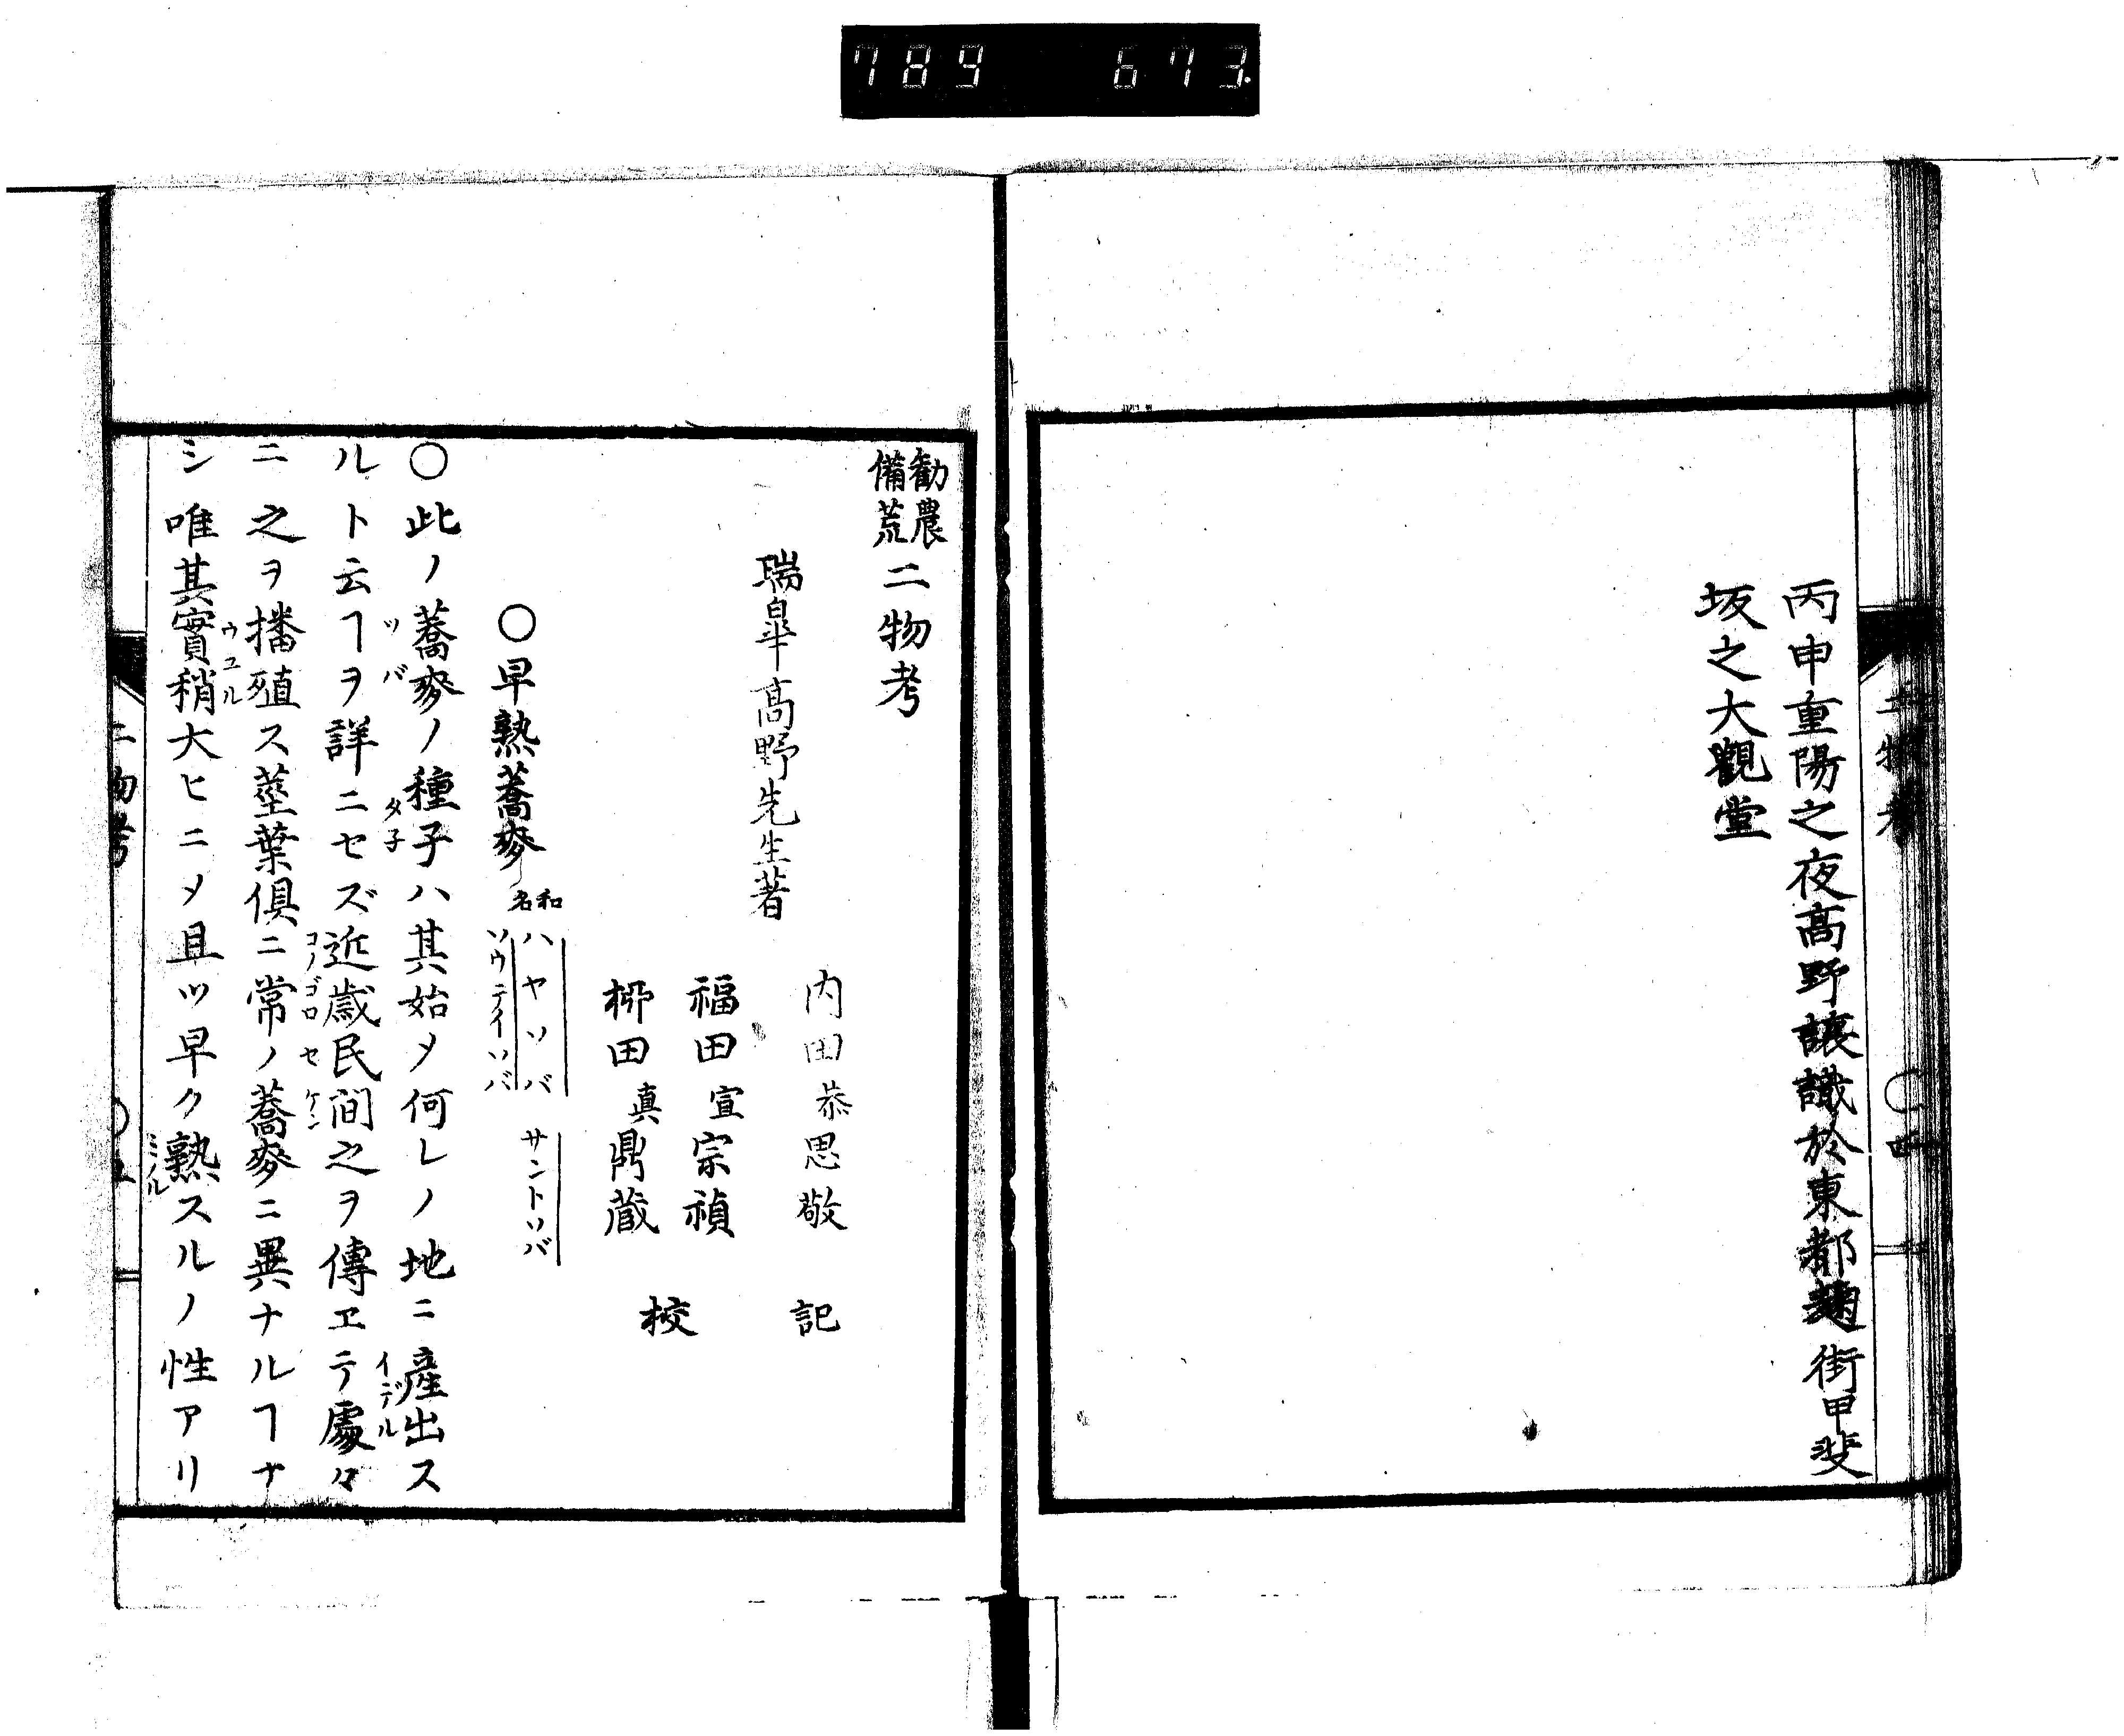 789 673.
丙申重陽之夜高野譲識於東都麹街甲斐
坂之大觀堂
勸農
備荒
二物考
瑞皐高野先生著
内田恭思敬 記
福田宣宗禎
栁田真鼎蔵 校
〇早熟蕎麥 和名 ハヤソバ サントソバ
ソウテイソバ
〇此ノ蕎麥ノ種子ハ其始メ何レノ地ニ産出ス
ソバ タ子 イデル
ルト云ヿヲ詳ニセズ近歳民間之ヲ傳ヱテ處々
コノゴロ セケン
ニ之ヲ播殖ス莖葉倶ニ常ノ蕎麥ニ異ナルヿナ
ウユル
シ唯其實稍大ヒニメ且ツ早ク熟スルノ性アリ
ミノル
二物考